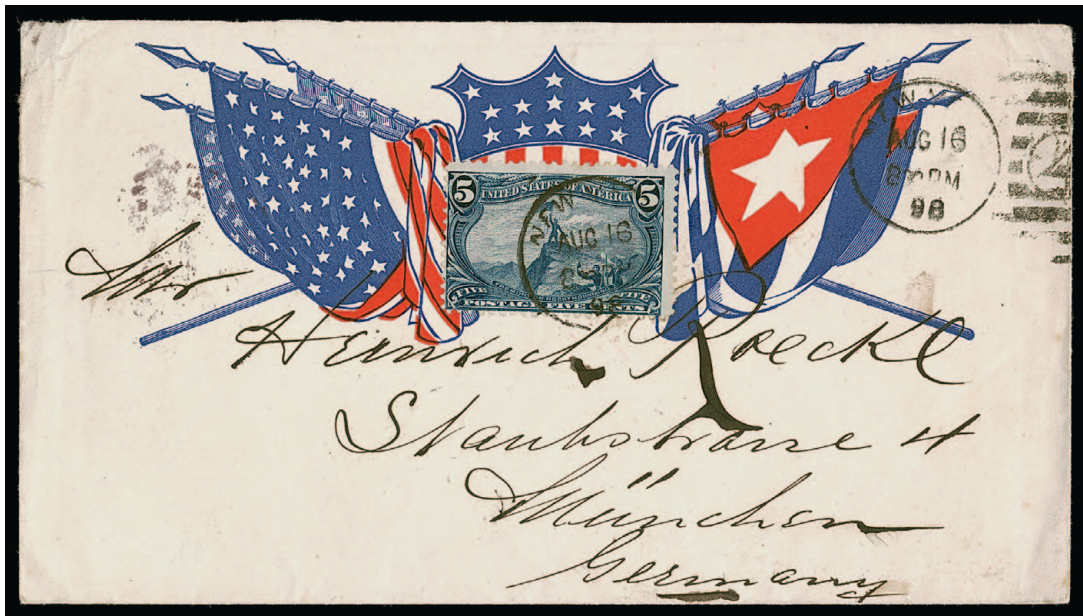 N.Y.
AUG 16
8 30 PM
98
2
5 UNITED STATES OF AMERICA 5
NEW
AUG 16
98
FIVE FIVE
POSTAGE FIVE CENTS
Herr
Heinrich Roeckl
Staubstrasse 4
München
Germany